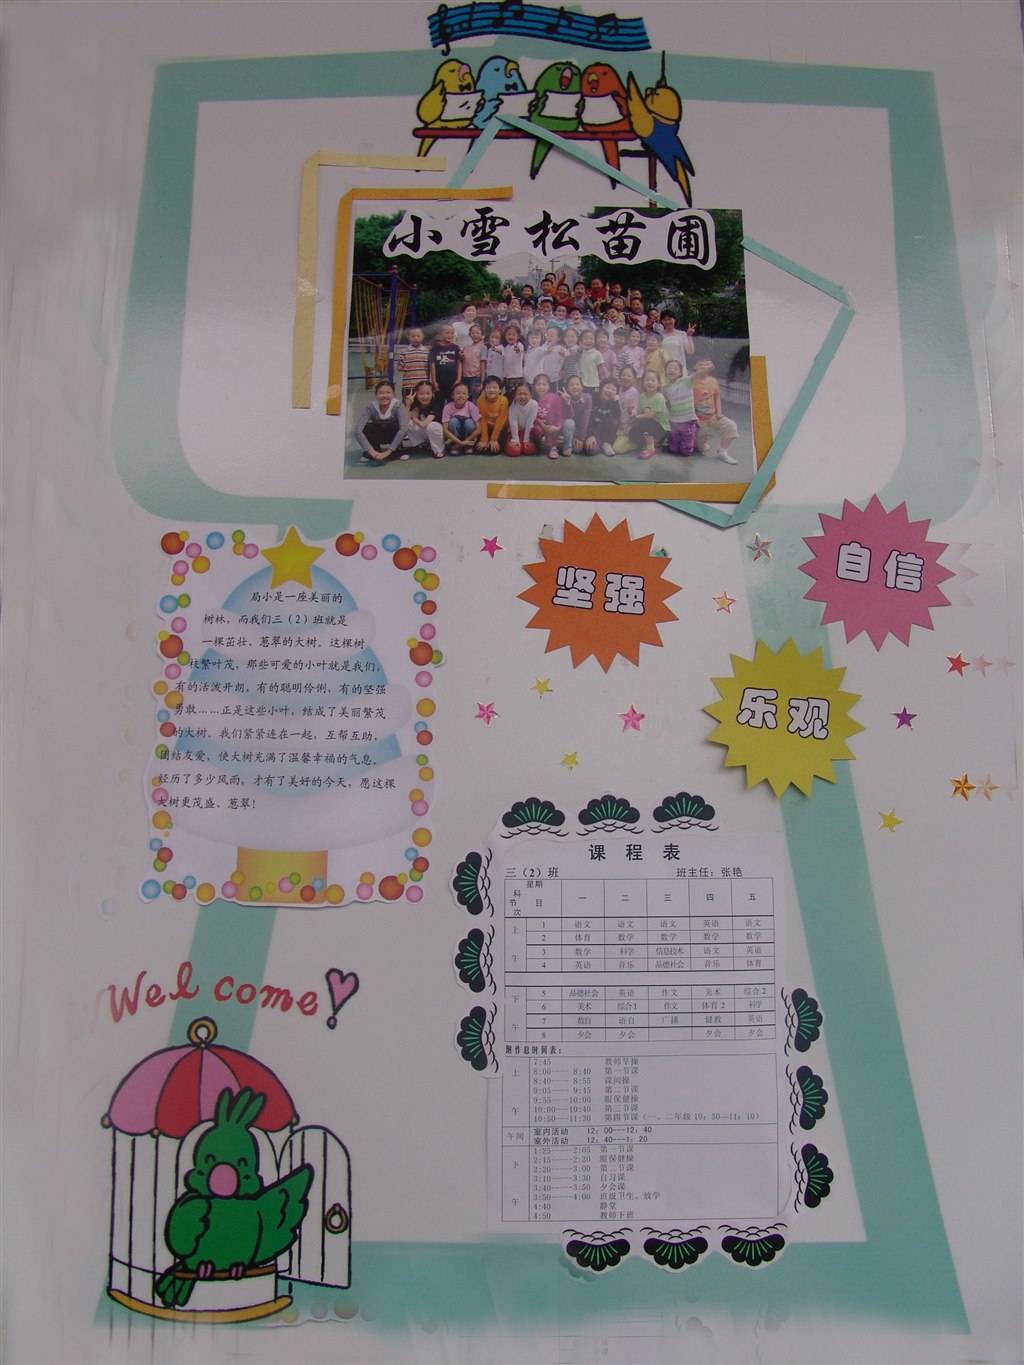 小雪松苗圃
坚强
自信
乐观
局小是一座美丽的
树林，而我们三（2）班就是
一棵茁壮、葱翠的大树。这棵树
枝繁叶茂，那些可爱的小叶就是我们，
有的活泼开朗，有的聪明伶俐，有的坚强
勇敢……正是这些小叶，结成了美丽繁茂
的大树。我们紧紧连在一起，互帮互助，
团结友爱，使大树充满了温馨幸福的气息。
经历了多少风雨，才有了美好的今天，愿这棵
大树更茂盛、葱翠！
Welcome!
课 程 表
三（2）班 班主任：张艳
星期 科目 节次 一 二 三 四 五
上午 1 语文 语文 语文 英语 语文
2 体育 数学 数学 数学 数学
3 数学 科学 信息技术 语文 英语
4 英语 音乐 品德社会 音乐 体育
下午 5 品德社会 英语 作文 美术 综合2
6 美术 综合1 作文 体育2 科学
7 数自 语自 广播 健教 英语
8 夕会 夕会 夕会 夕会
附作息时间表：
上午 7:45 教师早操
8:00---- 8:40 第一节课
8:40---- 8:55 课间操
9:05---- 9:45 第二节课
9:55----10:00 眼保健操
10:00---10:40 第三节课
10:50---11:30 第四节课（一、二年级 10：50--11：10）
午间 室内活动 12：00---12：40
室外活动 12：40---1：20
下午 1:25-----2:05 第一节课
2:15-----2:20 眼保健操
2:20-----3:00 第二节课
3:10-----3:30 自习课
3:40-----3:50 夕会课
3:50-----4:00 班级卫生、放学
4:40 静堂
4:50 教师下班